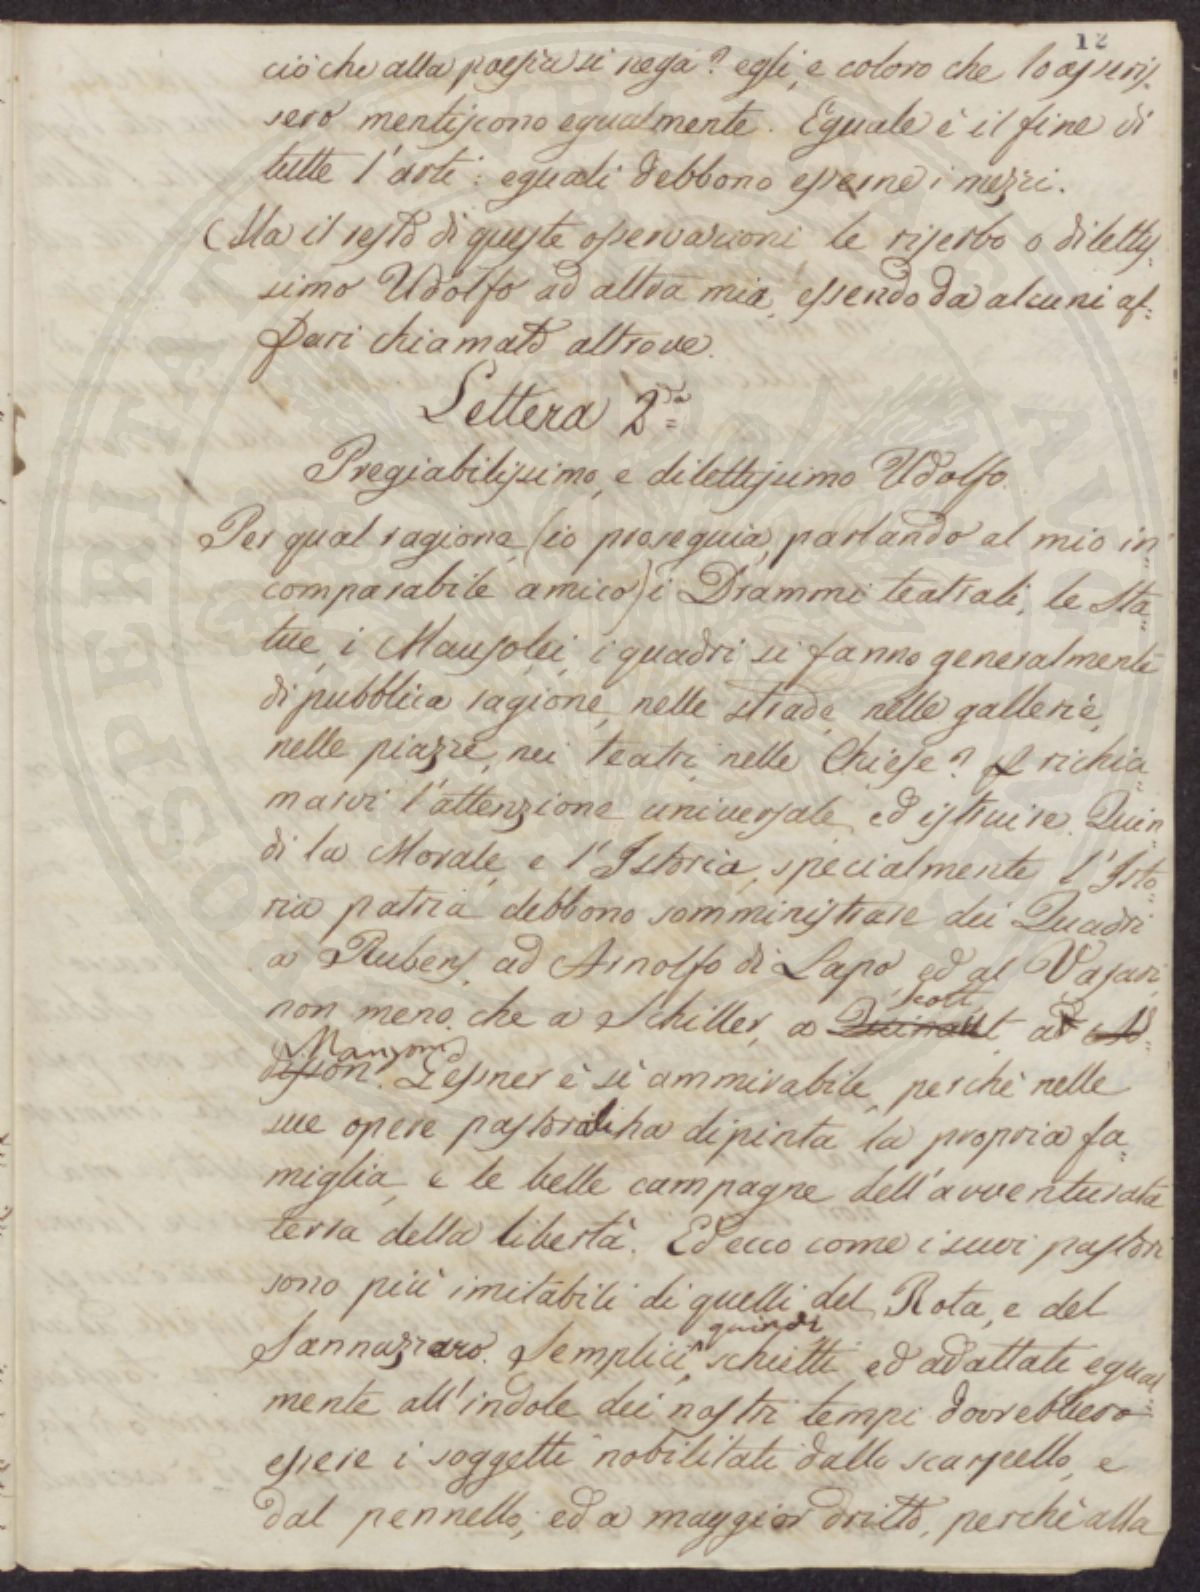 12
ciò che alla poesia si nega? egli, e coloro che lo asseris-
sero mentiscono egualmente. Eguale è il fine di
tutte l'arti: eguali debbono esserne i mezzi.
Ma il resto di queste osservazioni le riserbo o dilettis-
simo Udolfo ad altra mia, essendo da alcuni af=
fari chiamato altrove.
Lettera 2da=
Pregiabilissimo, e dilettissimo Udolfo.
Per qual ragione, (io proseguia, parlando al mio in=
comparabile amico) i Drammi teatrali, le sta=
tue, i Mausolei, i quadri si fanno generalmente
di pubblica ragione, nelle strade, nelle gallerie,
nelle piazze, nei teatri, nelle Chiese? A richia=
marvi l'attenzione universale, ed istruire. Quin=
di la Morale, e l'Istoria, specialmente l'Isto=
ria patria debbono somministrare dei Quadri
a Rubens, ad Arnolfo di Lapo, ed al Vasari,
Scott,
non meno che a Schiller, a Quinault ad Ad=
Manzoni
disson. Gessner è sì ammirabile, perchè nelle
sue opere pastorali ha dipinta la propria fa=
miglia, e le belle campagne dell'avventurata
terra della libertà. Ed ecco come i suoi pastori
sono più imitabili di quelli del Rota, e del
quindi
Sannazzaro. Semplici, schietti, ed adattati egual=
mente all'indole dei nostri tempi dovrebbero
essere i soggetti nobilitati dallo scarpello, e
dal pennello; ed a maggior dritto, perchè alla